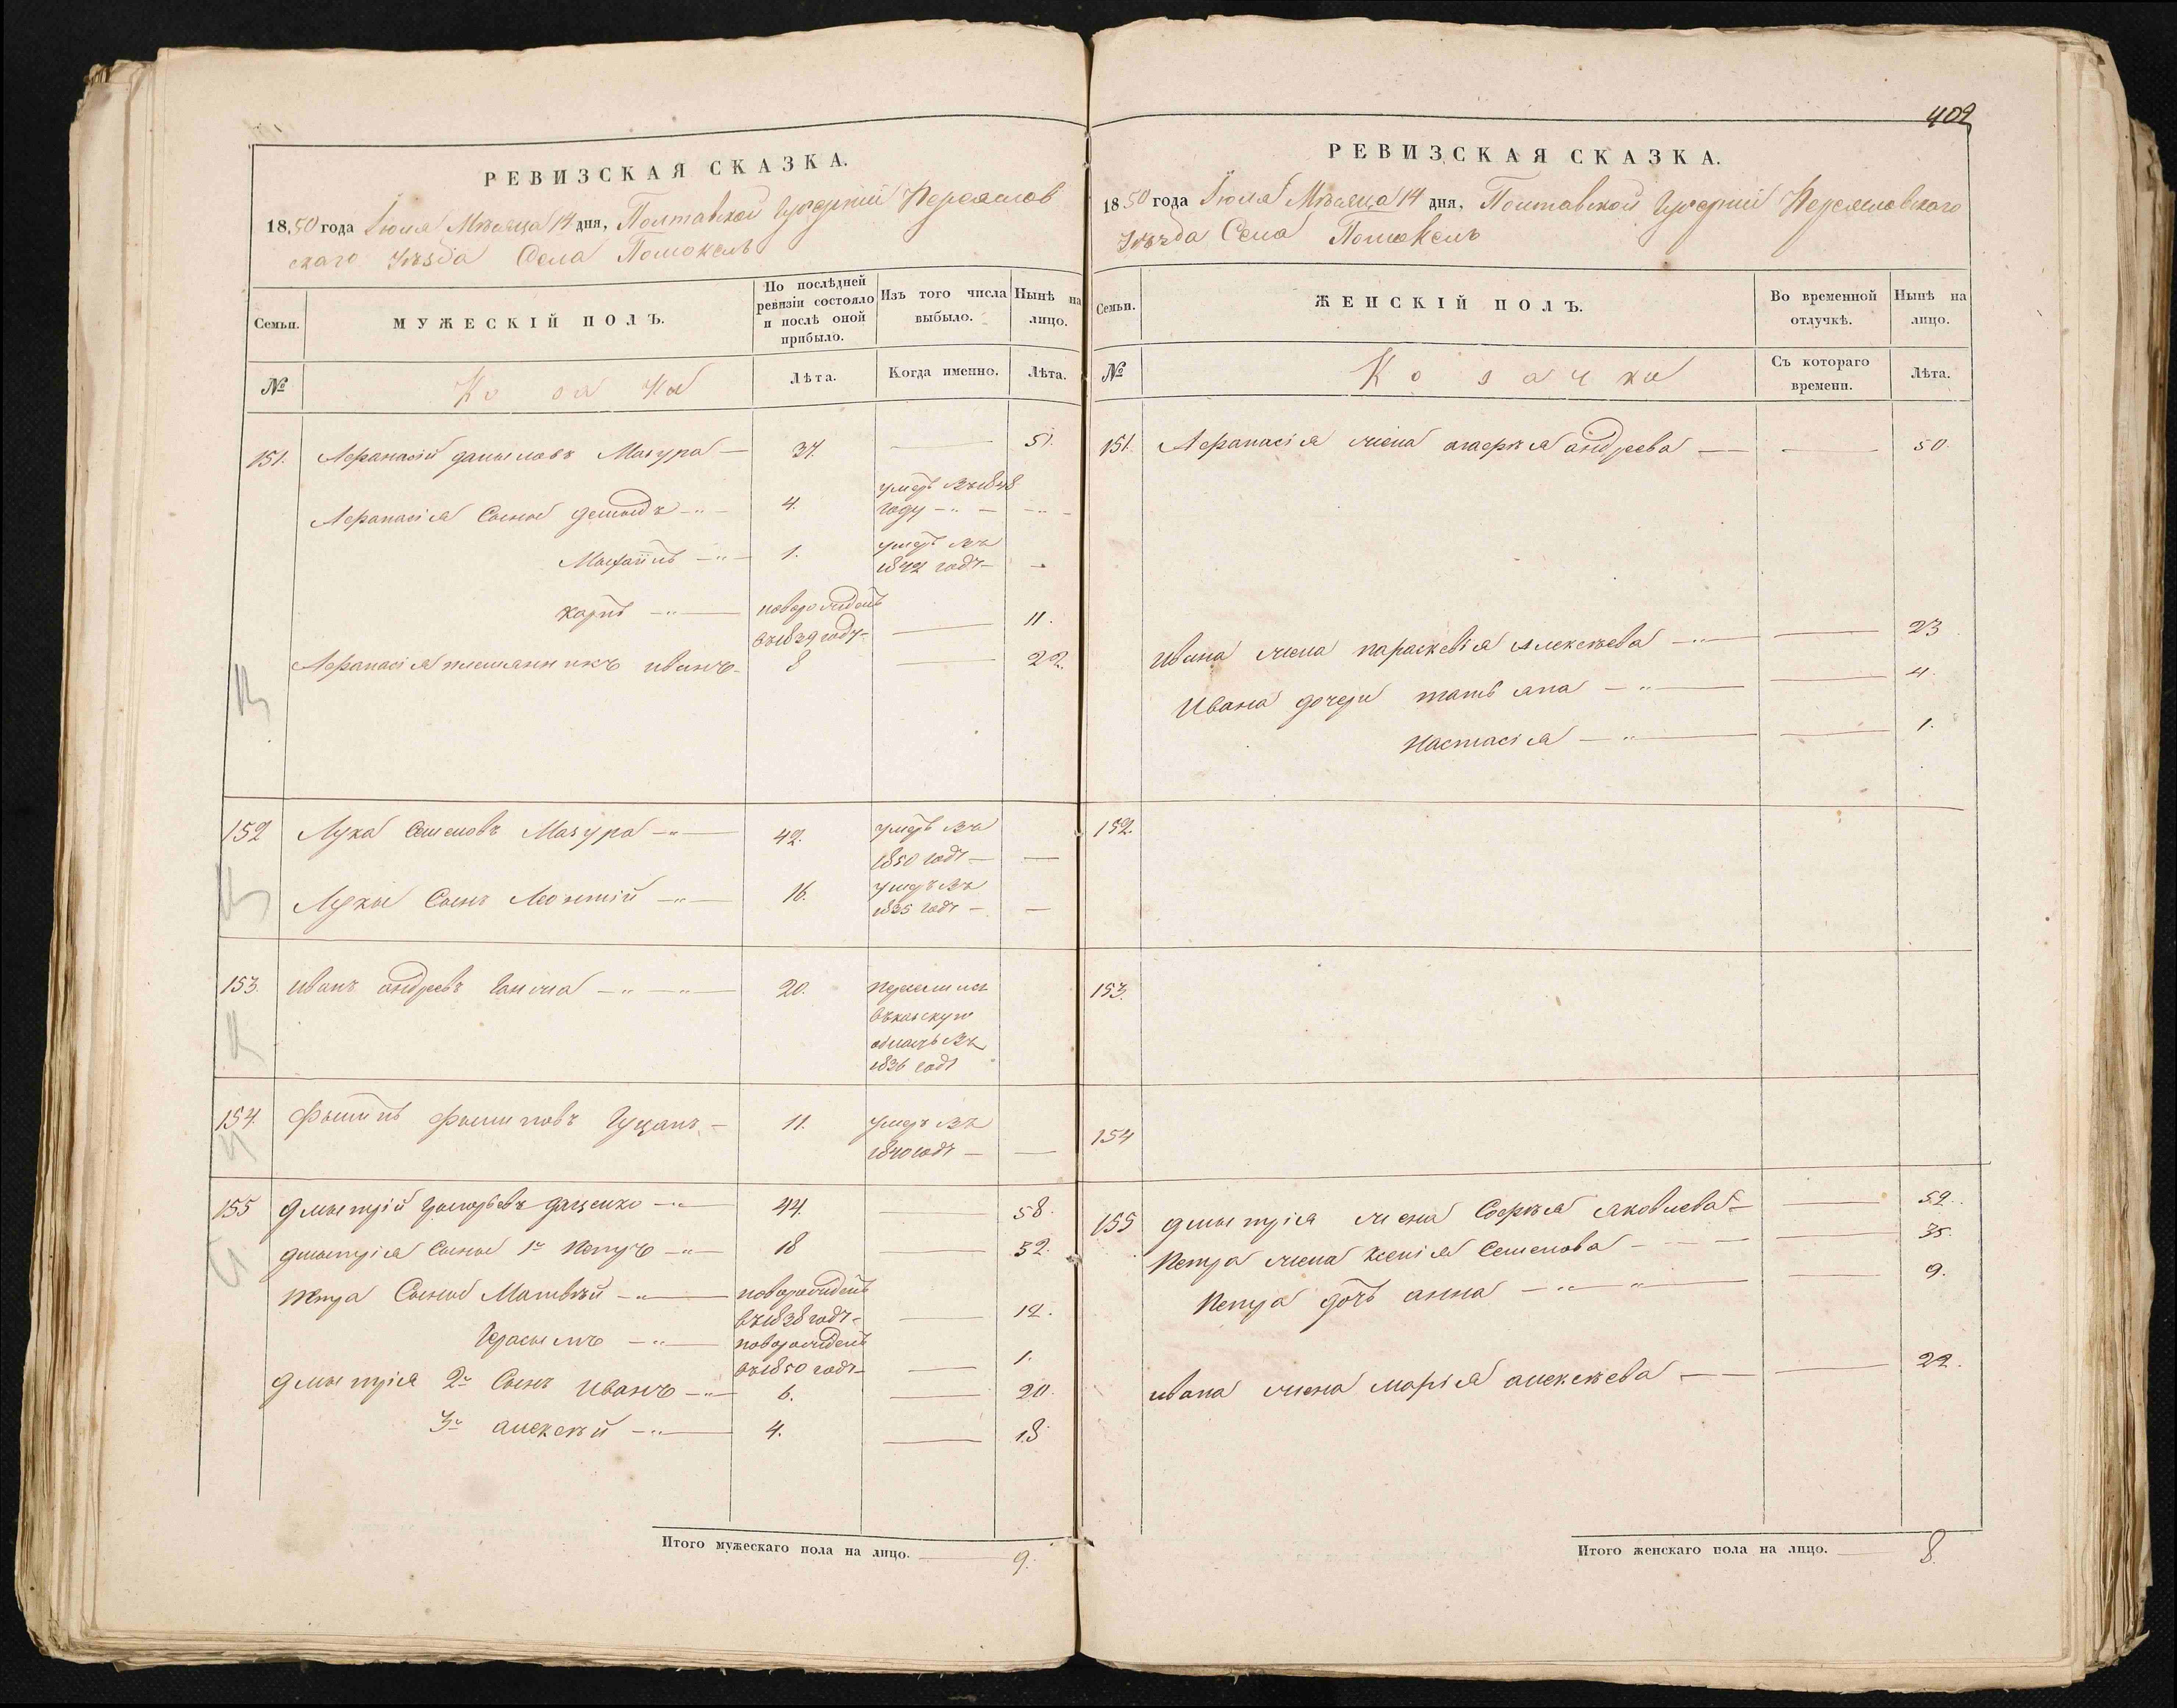 РЕВИЗСКАЯ СКАЗКА.
1850 года Іюля Мѣсяца 14 дня, Полтавской Губерніи Переяслов
скаго Уѣзда Села Помоклъ
Семьи.
МУЖЕСКІЙ ПОЛЪ.
По послѣдней ревизіи состояло и послѣ оной прибыло.
Изъ того числа выбыло.
Нынѣ на лицо.
№
Козаки
Лѣта.
Когда именно.
Лѣта.
151. Афанасій даниловъ Мазура — 34. — 51.
Афанасія Сыны демыдъ 4. умеръ въ 1848 году
1. умеръ въ 1842 годѣ
карпъ новорожденъ въ 1839 годѣ — 11.
Афанасія племянникъ иванъ 8 — 22.
152 Лука Семеновъ Мазура 42. умеръ въ 1850 годѣ —
Луки Сынъ Леонтій 16. умеръ въ 1835 годѣ —
153. иванъ андреевъ 20. въ 1836 годѣ
154. Филипъ Филиповъ Гуцанъ — 11. умеръ въ 1840 годѣ —
155 дмытрій Григорьевъ даценко 44. — 58.
дмытрія Сыны 1й Петръ 18 — 32.
Петра Сыны Матвѣй новорожденъ въ 1838 годѣ — 12.
Герасымъ новорожденъ въ 1850 годѣ — 1.
дмытрія 2й Сынъ иванъ 6. — 20.
3й алексѣй 4. — 18
Итого мужескаго пола на лицо. 9.
402
РЕВИЗСКАЯ СКАЗКА.
1850 года Іюля Мѣсяца 14 дня, Полтавской Губерніи Переясловскаго
Уѣзда Села Помоклъ
Семьи.
ЖЕНСКІЙ ПОЛЪ.
Во временной отлучкѣ.
Нынѣ на лицо.
№
Козачки
Съ котораго времени.
Лѣта.
151. Афанасія жена агафія андреева — 50.
ивана жена параскевія Алексѣева — 23
Ивана дочери татьяна — 4.
Настасія — 1.
152.
153.
154
155 дмытрія жена Софія яковлева — 52.
Петра жена ксенія Семенова — 35.
Петра дочь анна — 9.
ивана жена марія алексѣева — 22.
Итого женскаго пола на лицо. 8.